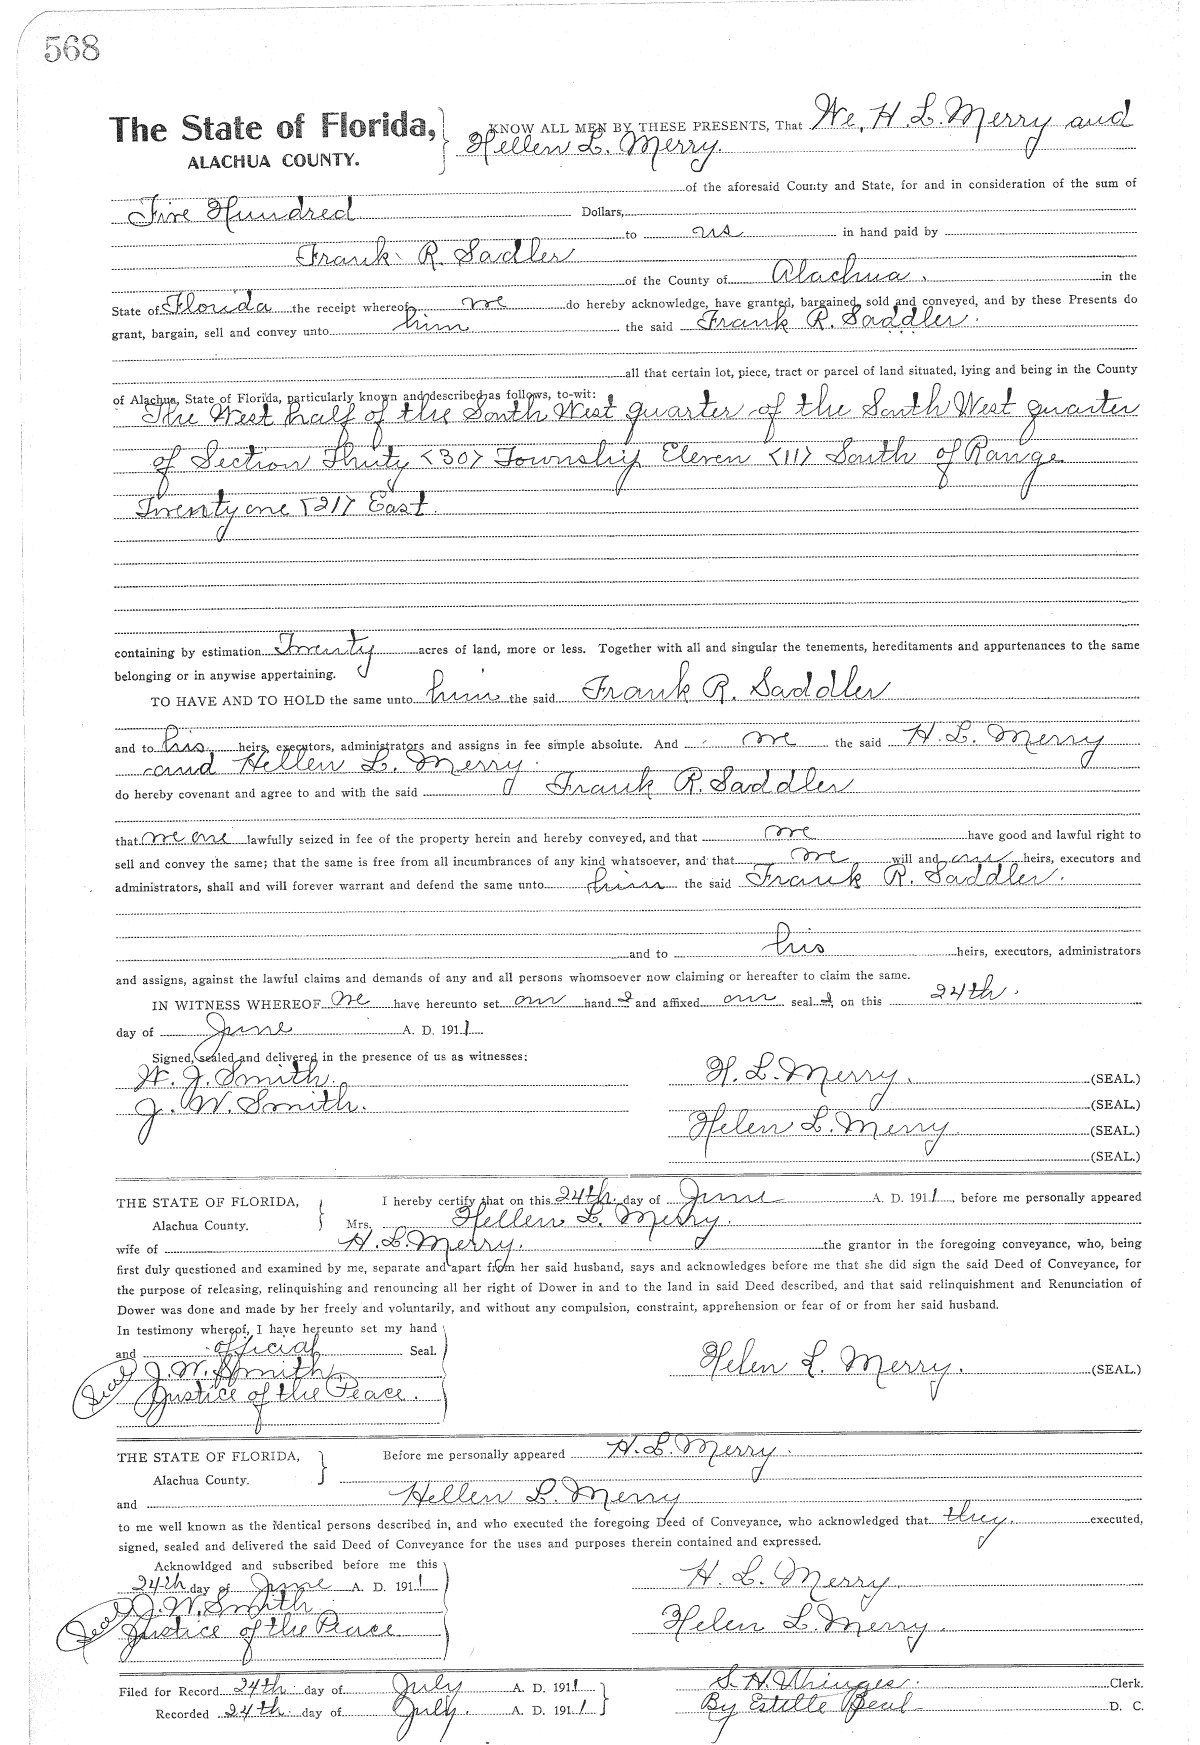 568
The State of Florida, KNOW ALL MEN BY THESE PRESENTS, That We, H. L. Merry and
ALACHUA COUNTY. Hellen L. Merry.
of the aforesaid County and State, for and in consideration of the sum of
Five Hundred Dollars,
to us in hand paid by
Frank R. Sadler
of the County of Alachua. in the
State of Florida the receipt whereof we do hereby acknowledge, have granted, bargained, sold and conveyed, and by these Presents do
grant, bargain, sell and convey unto him the said Frank R. Saddler.
all that certain lot, piece, tract or parcel of land situated, lying and being in the County
of Alachua, State of Florida, particularly known and described as follows, to-wit:
The West half of the South West quarter of the South West quarter
of Section Thirty <30> Township Eleven <11> South of Range
Twenty one <21> East.
containing by estimation Twenty acres of land, more or less. Together with all and singular the tenements, hereditaments and appurtenances to the same
belonging or in anywise appertaining.
TO HAVE AND TO HOLD the same unto him the said Frank R. Saddler
and to his heirs, executors, administrators and assigns in fee simple absolute. And we the said H. L. Merry
and Hellen L. Merry.
do hereby covenant and agree to and with the said Frank R. Saddler
that we are lawfully seized in fee of the property herein and hereby conveyed, and that we have good and lawful right to
sell and convey the same; that the same is free from all incumbrances of any kind whatsoever, and that we will and our heirs, executors and
administrators, shall and will forever warrant and defend the same unto him the said Frank R. Saddler.
and to his heirs, executors, administrators
and assigns, against the lawful claims and demands of any and all persons whomsoever now claiming or hereafter to claim the same.
IN WITNESS WHEREOF We have hereunto set our hand s and affixed our seal s, on this 24th.
day of June A. D. 1911
Signed, sealed and delivered in the presence of us as witnesses:
W. J. Smith. H. L. Merry. (SEAL.)
J. W. Smith. (SEAL.)
Helen L. Merry (SEAL.)
(SEAL.)
THE STATE OF FLORIDA, I hereby certify that on this 24th. day of June A. D. 1911, before me personally appeared
Alachua County. Mrs. Hellen L. Merry.
wife of H. L. Merry. the grantor in the foregoing conveyance, who, being
first duly questioned and examined by me, separate and apart from her said husband, says and acknowledges before me that she did sign the said Deed of Conveyance, for
the purpose of releasing, relinquishing and renouncing all her right of Dower in and to the land in said Deed described, and that said relinquishment and Renunciation of
Dower was done and made by her freely and voluntarily, and without any compulsion, constraint, apprehension or fear of or from her said husband.
In testimony whereof, I have hereunto set my hand
and official Seal.
Seal J. W. Smith Helen L. Merry. (SEAL.)
Justice of the Peace.
THE STATE OF FLORIDA, Before me personally appeared H. L. Merry.
Alachua County.
and Hellen L. Merry
to me well known as the identical persons described in, and who executed the foregoing Deed of Conveyance, who acknowledged that they. executed,
signed, sealed and delivered the said Deed of Conveyance for the uses and purposes therein contained and expressed.
Acknowldged and subscribed before me this
24th day of June A. D. 1911 H. L. Merry
Seal J. W. Smith
Justice of the Peace Helen L. Merry.
Filed for Record 24th day of July A. D. 1911 S. H. Wienges. Clerk.
Recorded 24th. day of July. A. D. 1911 By Estelle D. C.